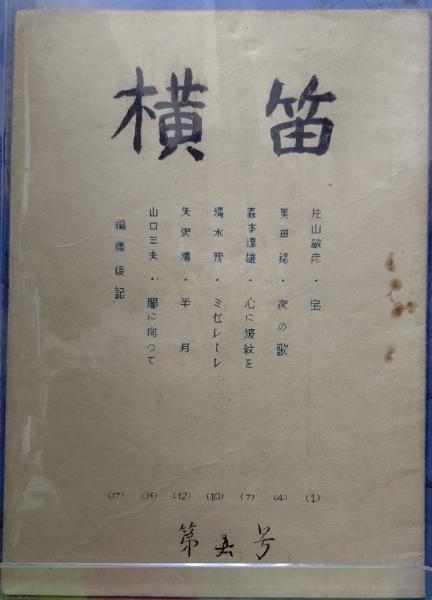 横笛
片山敏彦・宝 (1)
美田稔・夜の歌 (4)
森本達雄・心に波紋を (7)
清水茂・ミゼレーレ (10)
矢沢清・半月 (12)
山口三夫・闇に向って (14)
編集後記 (17)
第五号